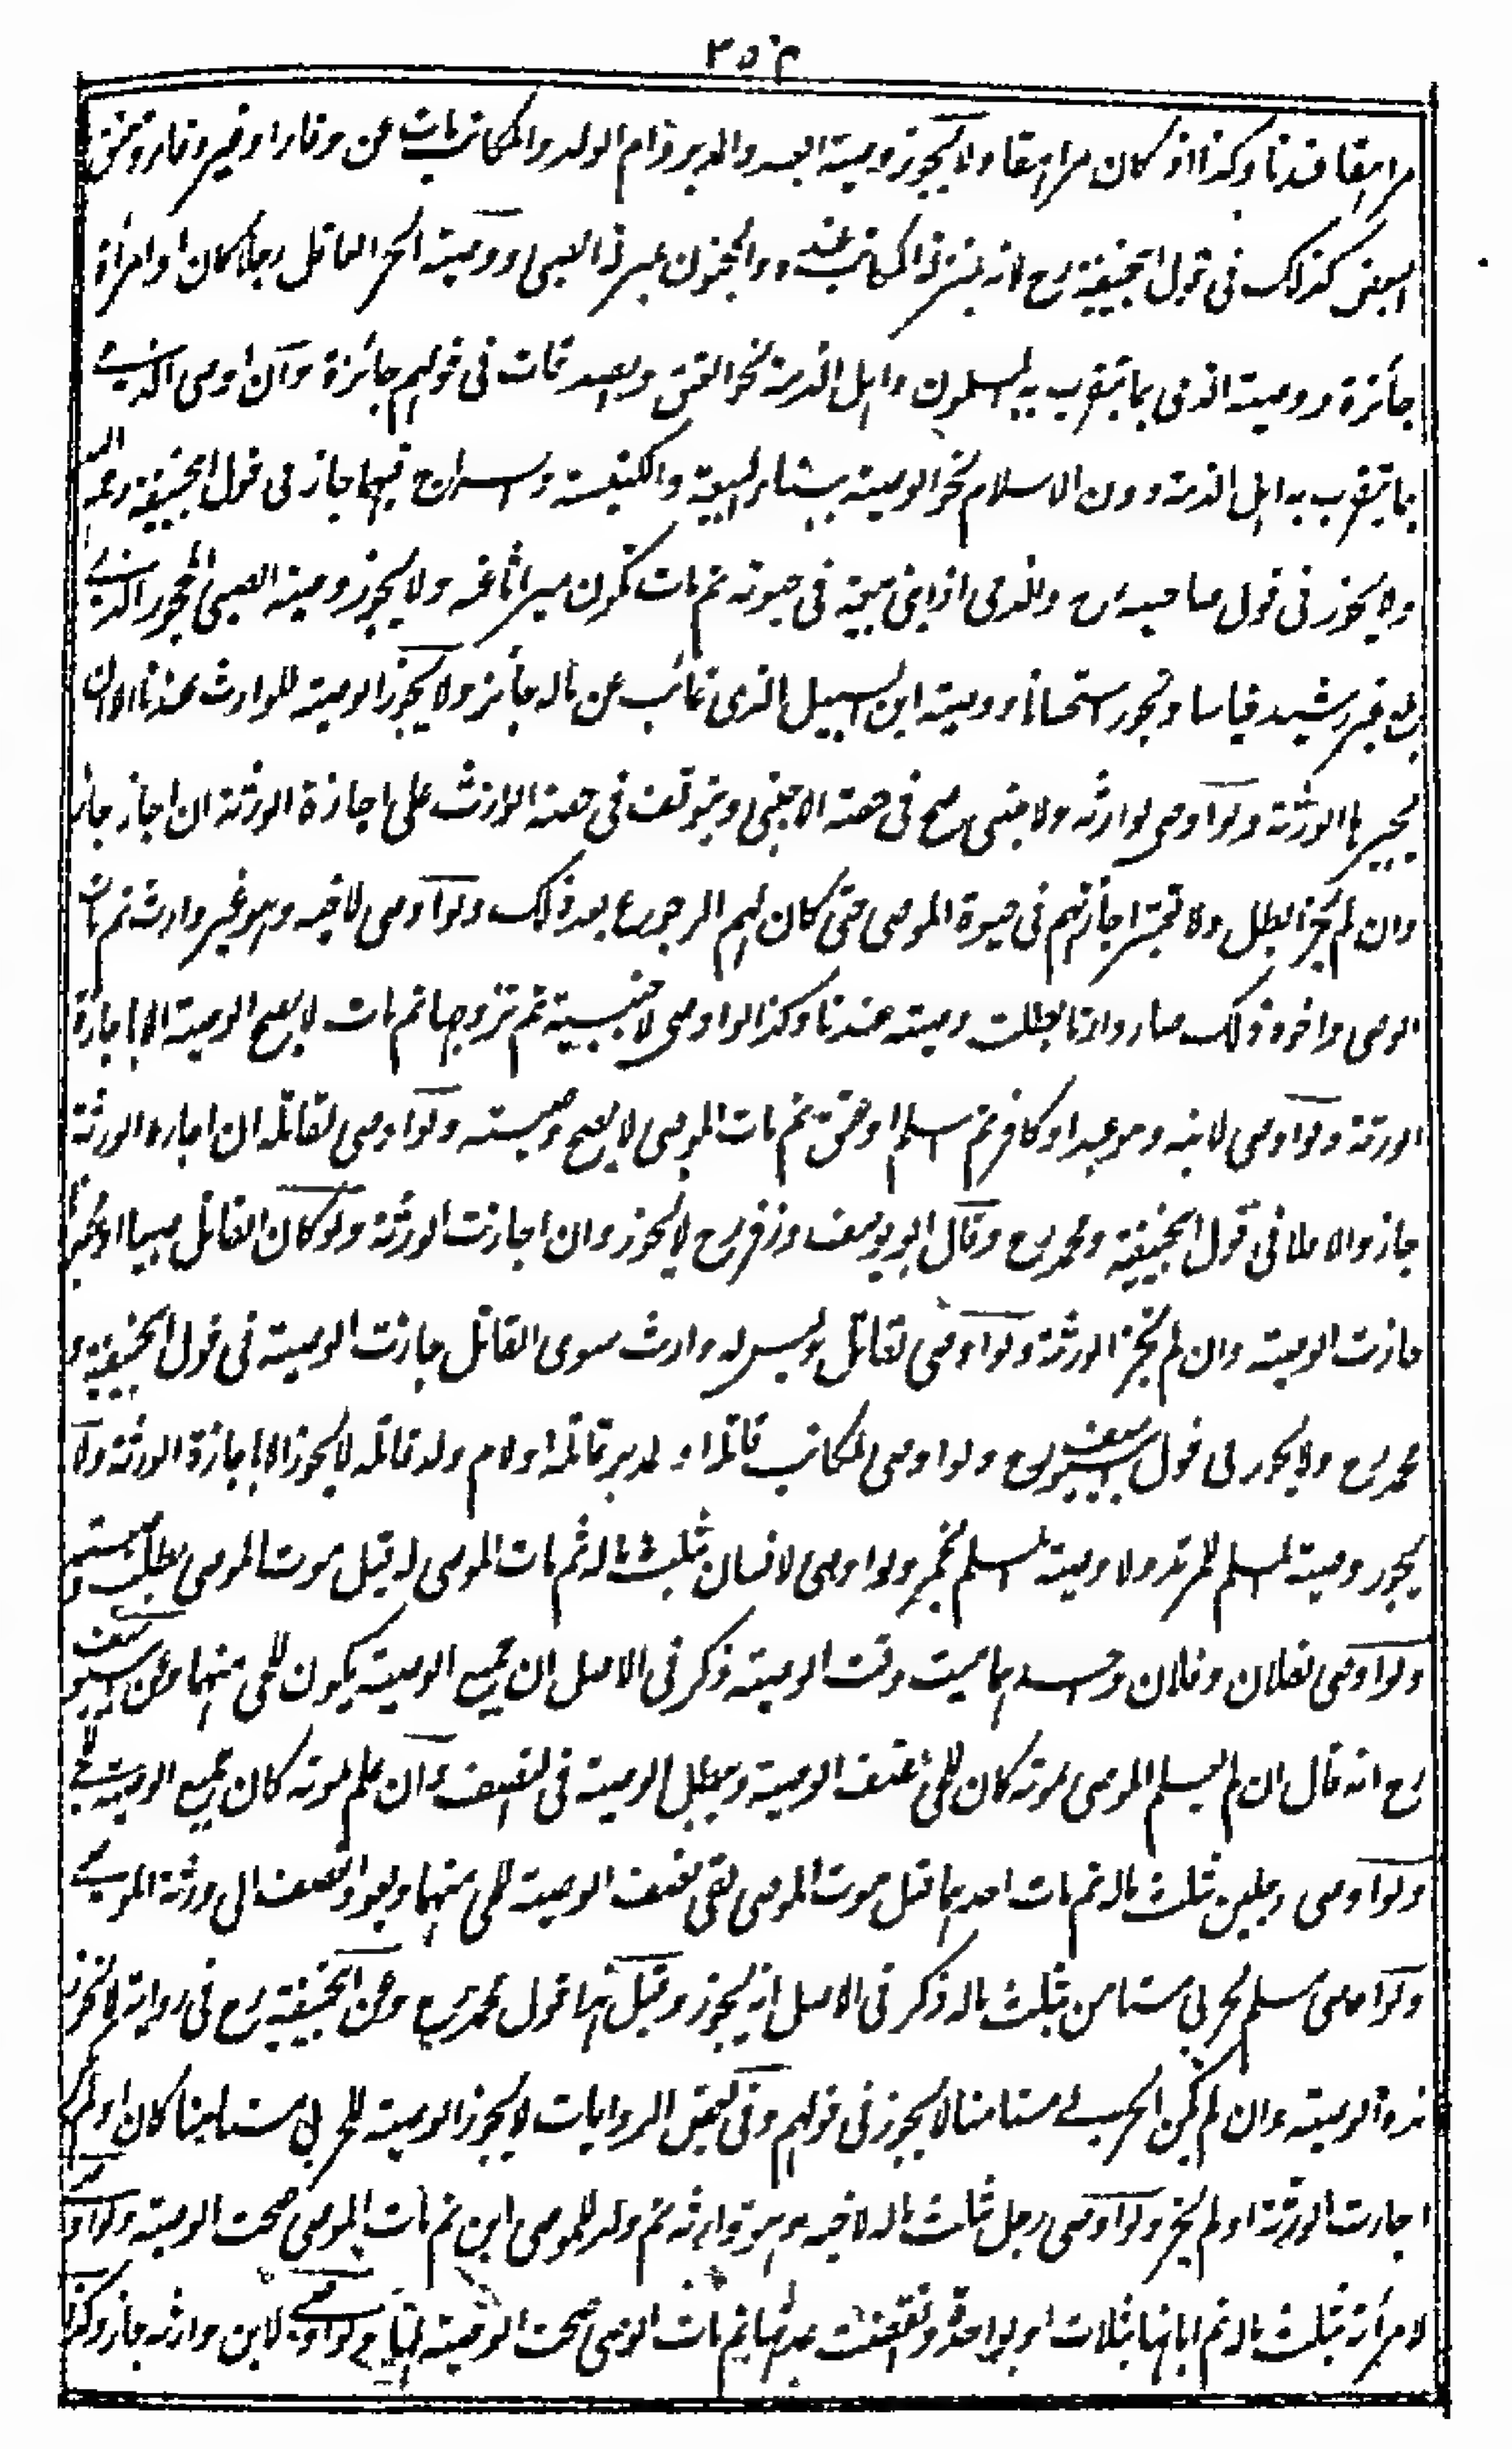 ٣٥٢
مراهقا عندنا وكذا اذا كان مراهقا ولا يجوز وصية العبد والمدبر وام الولد والمكاتب مات عن وفاء او غير وفاء ومعتق
البعض كذلك في قول ابيحنيفة رح لانه بمنزلة المكاتب عنده والمجنون بمنزلة الصبي ووصية الحر العاقل رجلا كان او امرأة
جائزة ووصية الذمي بما يتقرب به المسلمون واهل الذمة نحو العتق والصدقات في قولهم جائزة وان اوصى الذمي
بما يتقرب به اهل الذمة دون الاسلام نحو الوصية ببناء البيعة والكنيسة والسراج فيها جاز في قول ابيحنيفة رحمه الله
ولا يجوز في قول صاحبيه رح والذمي اذا بنى بيعة في حيوته ثم مات تكون ميراثا عنه ولا يجوز وصية الصبي المحجور الذي
بلغ غير رشيد قياسا وتجوز استحسانا ووصية ابن السبيل الذي غائب عن ماله جائز ولا يجوز الوصية للوارث عندنا الا ان
يجيزها الورثة ولو اوصى لوارثه ولاجنبي صح في حصة الاجنبي ويتوقف في حصة الوارث على اجازة الورثة ان اجاز جاز
وان لم يجز بطل ولا تعتبر اجازتهم في حيوة الموصي حتى كان لهم الرجوع بعد ذلك ولو اوصى لاخيه وهو غير وارث ثم مات
الموصي واخوه ذلك صار وارثا بطلت وصيته عندنا وكذا لو اوصى لاجنبية ثم تزوجها ثم مات لا يصح الوصية الا باجازة
الورثة ولو اوصى لابنه وهو عبد او كافر ثم اسلم او عتق ثم مات الموصي لا يصح وصيته ولو اوصى لقاتله ان اجازه الورثة
جاز والا فلا في قول ابيحنيفة ومحمد رح وقال ابو يوسف وزفر رح لا يجوز وان اجازت الورثة ولو كان القاتل صبيا او مجنونا
جازت الوصية وان لم تجز الورثة ولو اوصى لقاتل وليس له وارث سوى القاتل جازت الوصية في قول ابيحنيفة و
محمد رح ولا يجوز في قول ابييوسف رح ولو اوصى لمكاتب قاتله او لمدبر قاتله او لام ولد قاتله لا يجوز الا باجازة الورثة ولا
يجوز وصية المسلم للمرتد ولا وصية المسلم بخمر ولو اوصى لانسان بثلث ماله ثم مات الموصى له قبل موت الموصي بطلت وصيته
ولو اوصى لفلان وفلان واحدهما ميت وقت الوصية ذكر في الاصل ان جميع الوصية يكون للحي منهما وعن ابييوسف
رح انه قال ان لم يعلم الموصي بموته كان للحي نصف الوصية ويبطل الوصية في النصف وان علم بموته كان جميع الوصية للحي
ولو اوصى لرجلين بثلث ماله ثم مات احدهما قبل موت الموصي بقي نصف الوصية للحي منهما ويعود النصف الى ورثة الموصي
ولو اوصى مسلم لحربي مستامن بثلث ماله ذكر في الاصل انه يجوز وقيل هذا قول محمد رح وعن ابيحنيفة رح في رواية لا يجوز
هذه الوصية وان لم يكن الحربي مستامنا لا يجوز في قولهم وفي بعض الروايات لا يجوز الوصية للحربي مستامنا كان او لم يكن
اجازت الورثة او لم يجز ولو اوصى رجل بثلث ماله لاخيه وهو وارثه ثم ولد للموصي ابن ثم مات الموصي صحت الوصية ولو اوصى
لامرأته بثلث ماله ثم ابانها بثلاث او بواحدة وانقضت عدتها ثم مات الموصي صحت الوصية لها ولو اوصى لابن وارثه جاز وكذا